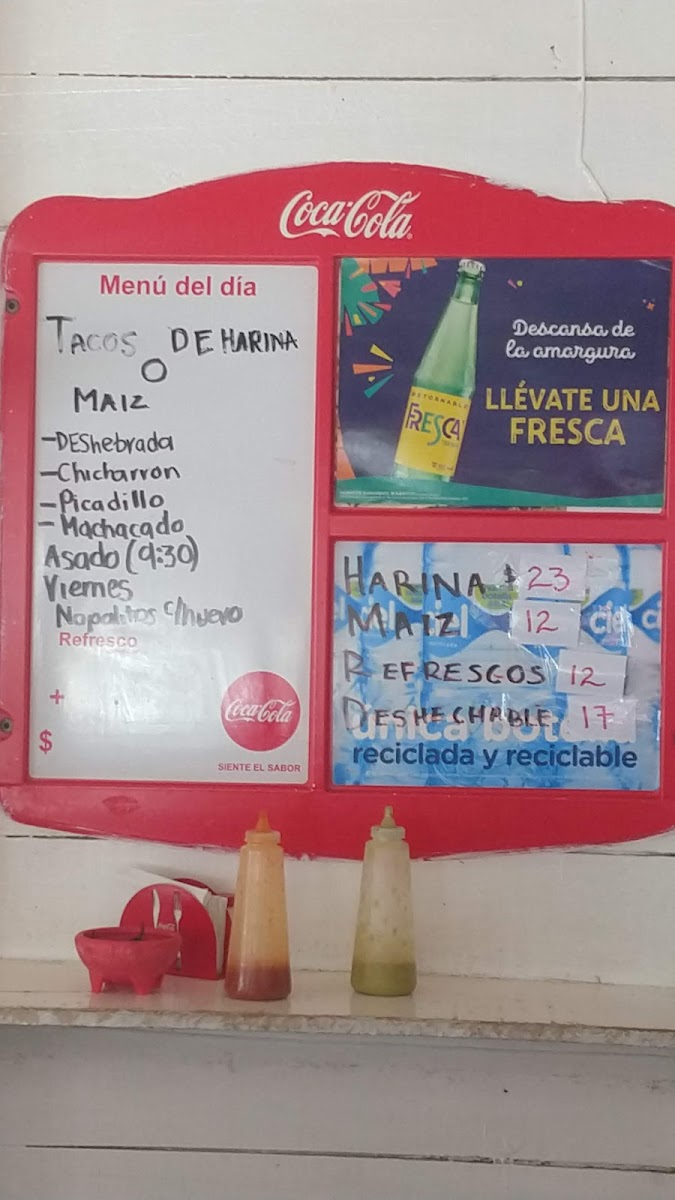 Coca-Cola
Menú del día
TACOS DE HARINA
O
MAIZ
-DEShebrada
-Chicharron
-Picadillo
-Machacado
Asado (9:30)
Viernes
Nopalitos c/huevo
Refresco
+
$
Coca-Cola
SIENTE EL SABOR
RETORNABLE
FRESCA
Descansa de
la amargura
LLÉVATE UNA
FRESCA
HARINA $ 23
MAIZ 12
REFRESCOS 12
DESHECHABLE 17
ciel
ciel
única bote
reciclada y reciclable